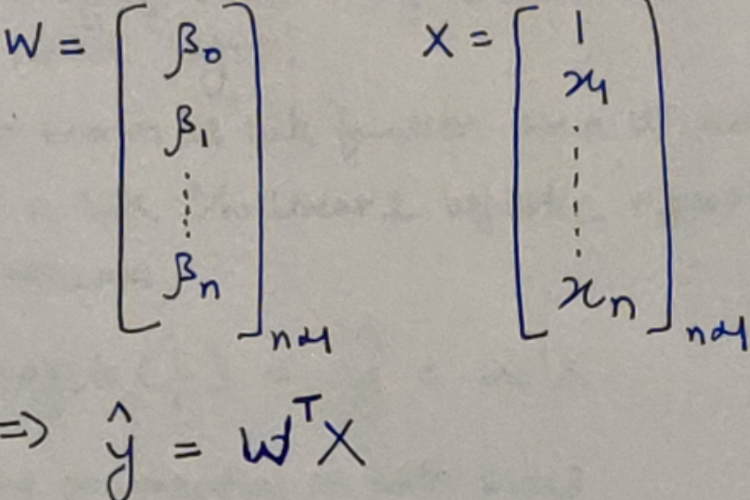 W = [β₀ β₁ ⋮ βₙ]ₙₓ₁ X = [1 x₁ ⋮ xₙ]ₙₓ₁
=> ŷ = WᵀX